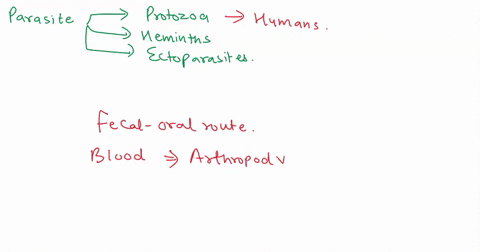 Parasite → Protozoa → Humans.
→ Heminths
→ Ectoparasites.
Fecal-oral route.
Blood ⇒ Arthropod v